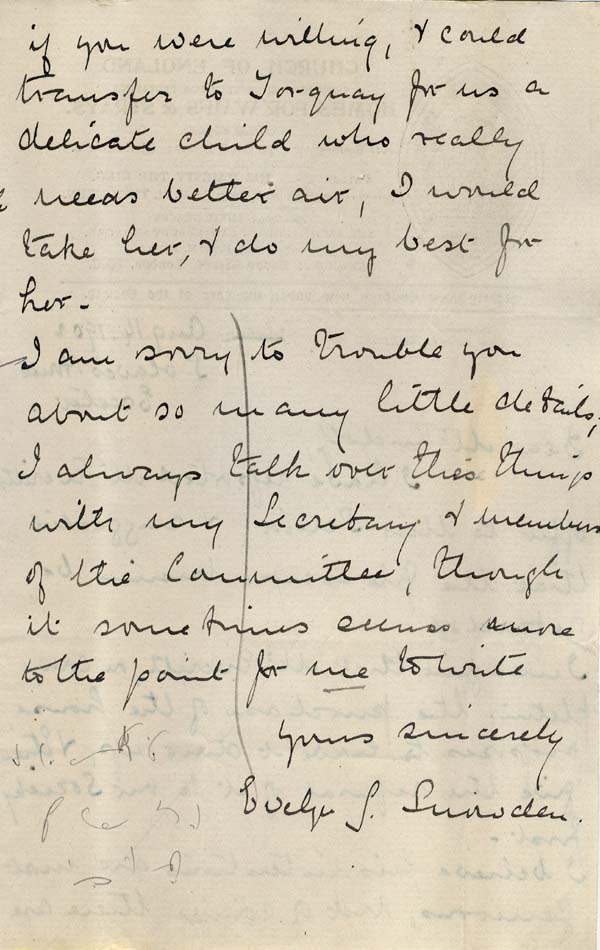 if you were willing, & could
transfer to Torquay for us a
delicate child who really
needs better air, I would
take her, & do my best for
her.
I am sorry to trouble you
about so many little details;
I always talk over these things
with my Secretary & members
of the Committee, though
it sometimes seems more
to the point for me to write
yours sincerely
Evelyn S. Snowden.